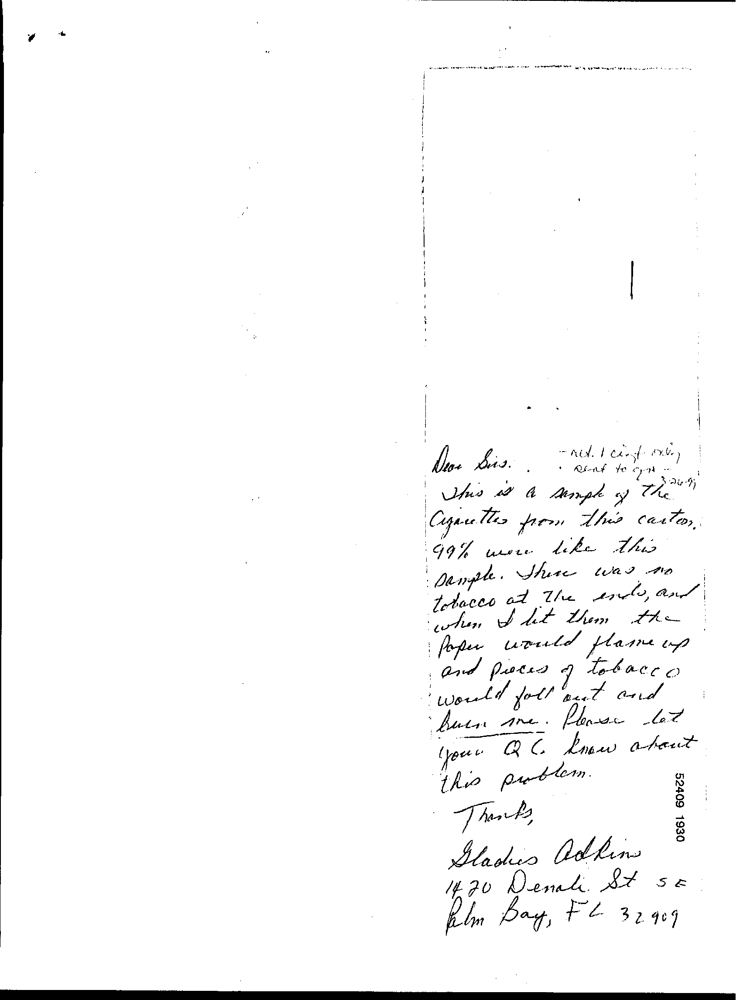 Dear Sirs.
- rcd. 1 cigt only
sent to
This is a sample of the
Cigarettes from this carton.
99% were like this
sample. There was no
tobacco at the ends, and
when I lit them the
Paper would flame up
and pieces of tobacco
would fall out and
burn me. Please let
your Q C. know about
this problem.
Thanks,
Gladies Adkins
1420 Denali St SE
Palm Bay, FL 32909
52409 1930